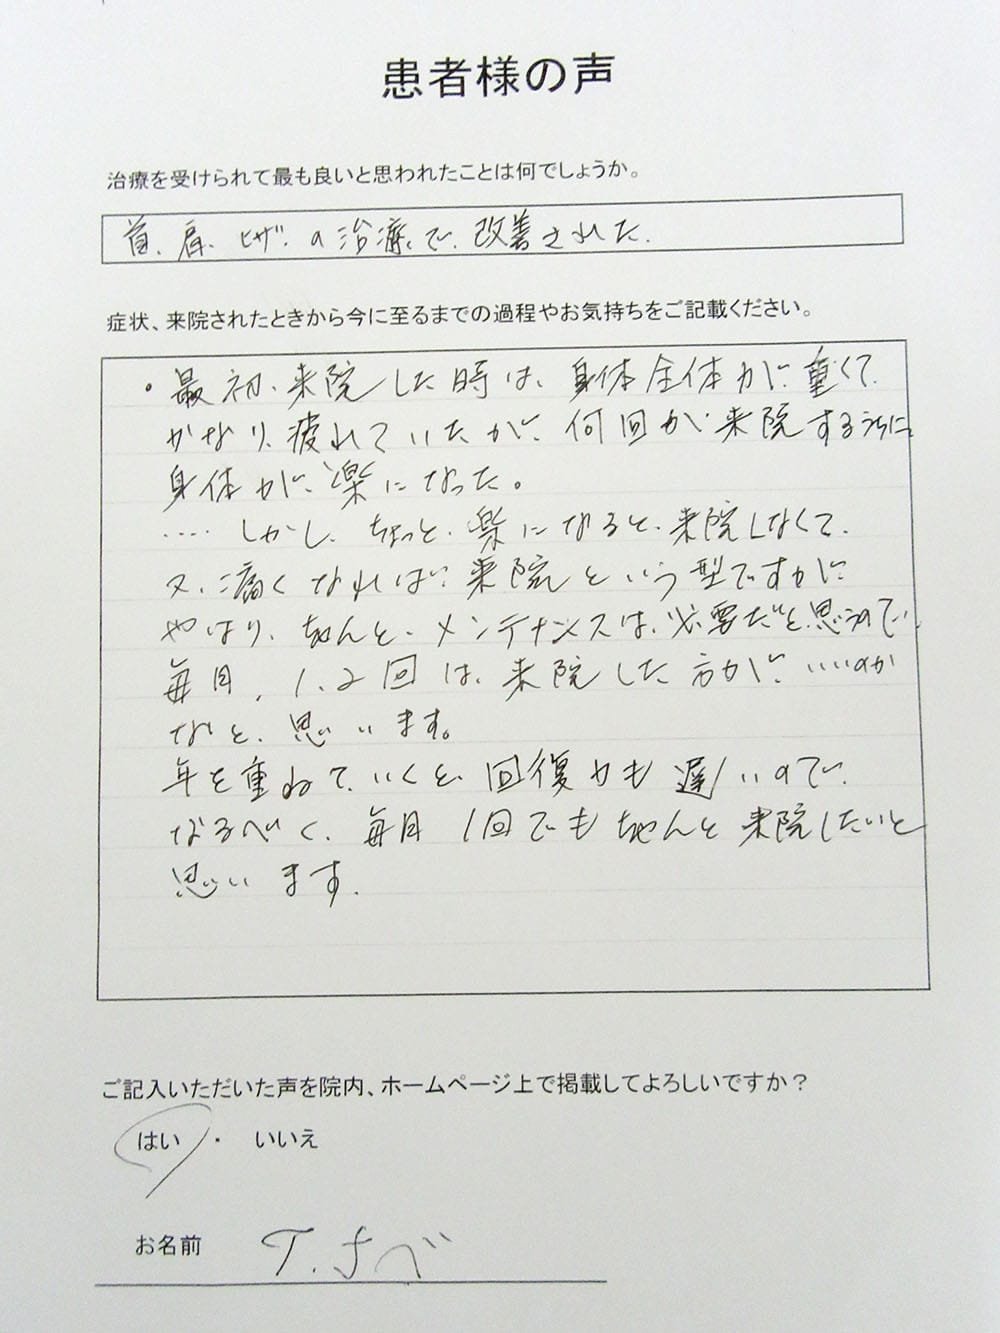 患者様の声
治療を受けられて最も良いと思われたことは何でしょうか。
首、肩、ヒザの治療で、改善された。
症状、来院されたときから今に至るまでの過程やお気持ちをご記載ください。
・最初、来院した時は、身体全体が、重くて、
かなり、疲れていたが、何回か来院するうちに、
身体が、楽になった。
‥‥しかし、ちょっと、楽になると、来院しなくて、
又、痛くなれば、来院という型ですが、
やはり、ちゃんと、メンテナンスは、必要だと、思うので、
毎月、1、2回は、来院した方が、いいのか
なと、思います。
年を重ねていくと、回復力も遅いので、
なるべく、毎月1回でもちゃんと来院したいと
思います。
ご記入いただいた声を院内、ホームページ上で掲載してよろしいですか？
はい ・ いいえ
お名前 T.